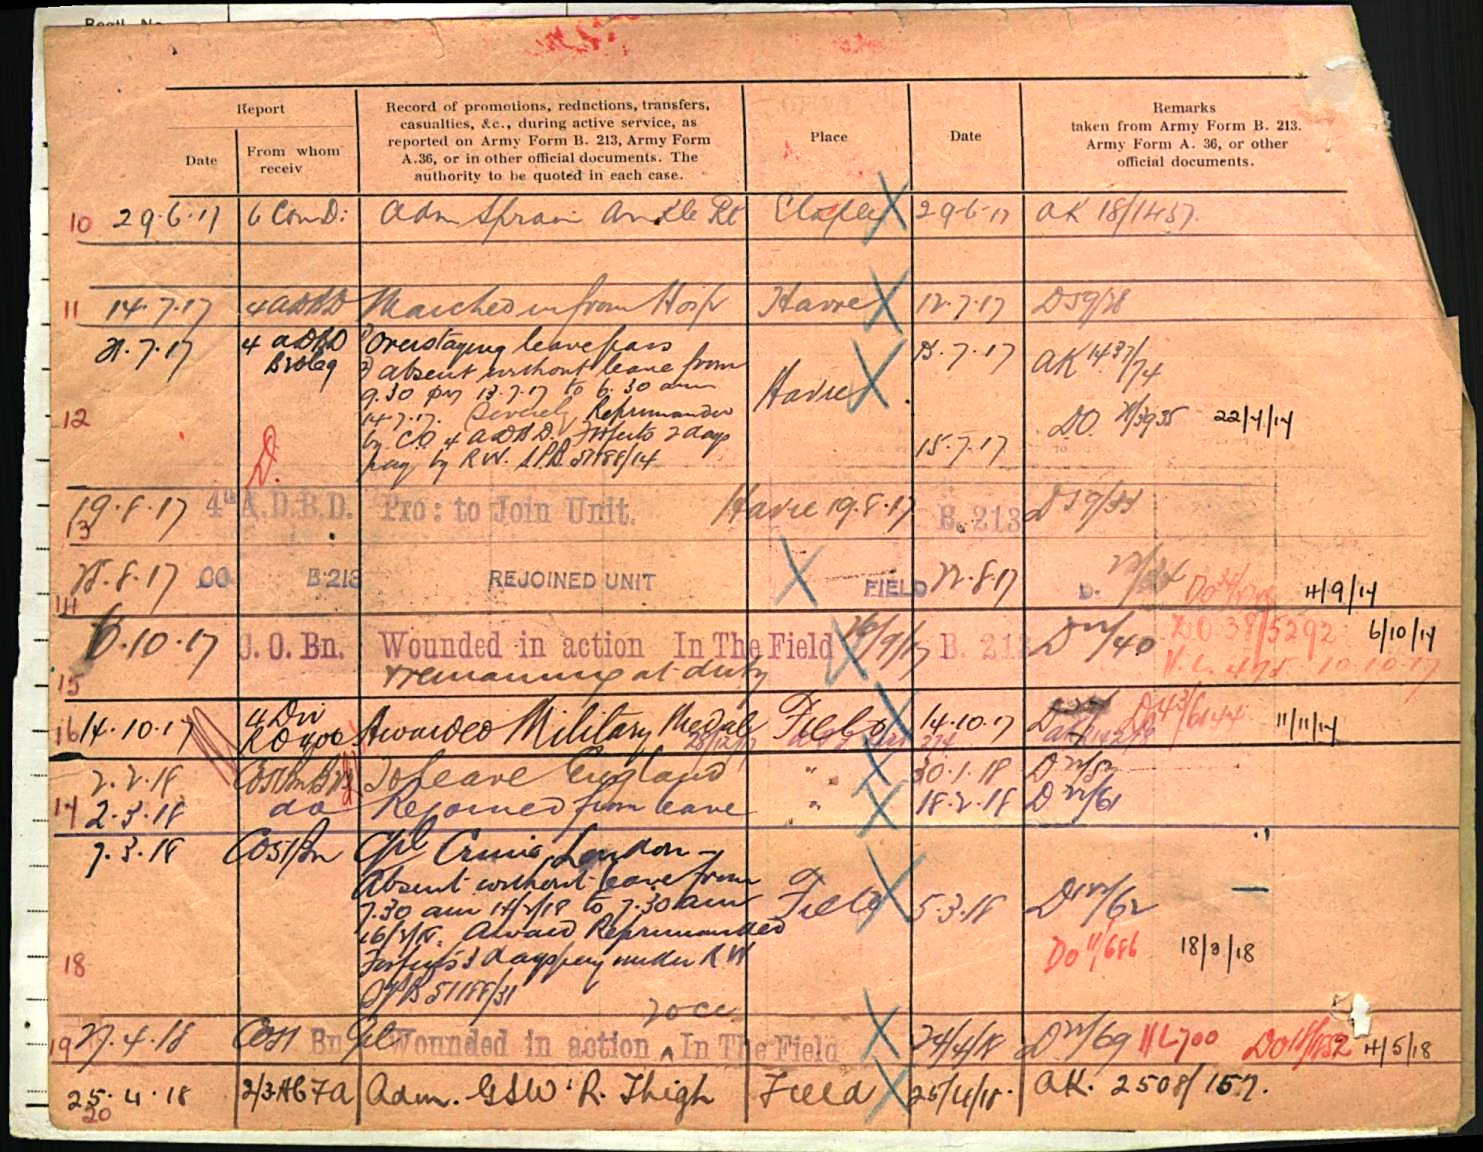 Regtl. No.
Report
Date
From whom receiv
Record of promotions, reductions, transfers,
casualties, &c., during active service, as
reported on Army Form B. 213, Army Form
A.36, or in other official documents. The
authority to be quoted in each case.
Place
Date
Remarks
taken from Army Form B. 213.
Army Form A. 36, or other
official documents.
10 29.6.17 6 Con D: Adm Sprain Ankle Rt 29.6.17 AK 18/1457.
11 14.7.17 4 ADBD Marched in from Hosp Havre 12.7.17
12 21.7.17 4 ADBD Overstaying leave pass Havre 15.7.17 AK 1437/74
2) absent without leave from
9.30 pm 13.7.17 to 6.30 am
14.7.17. Severely Reprimanded
by C.O. 4 ADBD. Forfeits 2 days
pay by R.W.
15.7.17
DO 3935
D.
13 19.8.17 4th A.D.B.D. Pro: to Join Unit. Havre 19.8.17 B. 213
14 .8.17 CO B 213 REJOINED UNIT FIELD .8.17 D. 4/9/17
15 6.10.17 C.O. Bn. Wounded in action In The Field /9/17 B. 213 D /40 DO 38/5292 6/10/17
remaining at duty
10.10.17
16 14.10.17 4 Div RO Awarded Military Medal Field 14.10.17 11/11/17
2.2.18 To Leave England " 30.1.18 D
17 2.3.18 do Rejoined from leave " 18.2.18 D /61
18 7.3.18 CO 51 Bn Cpl Crime London - Field 5.3.18 D /62
Absent without leave from
7.30 am 14/2/18 to 7.30 am
16/2/18. Award Reprimanded
Forfeits 3 days pay under RW
Do 11/686 18/3/18
19 27.4.18 CO 51 Bn Cpl Wounded in action In The Field 24/4/18 D /69 HL700 4/5/18
2 occ
20 25.4.18 2/3 AC FA Adm. GSW R. Thigh Field 25/4/18. AK. 2508/157.